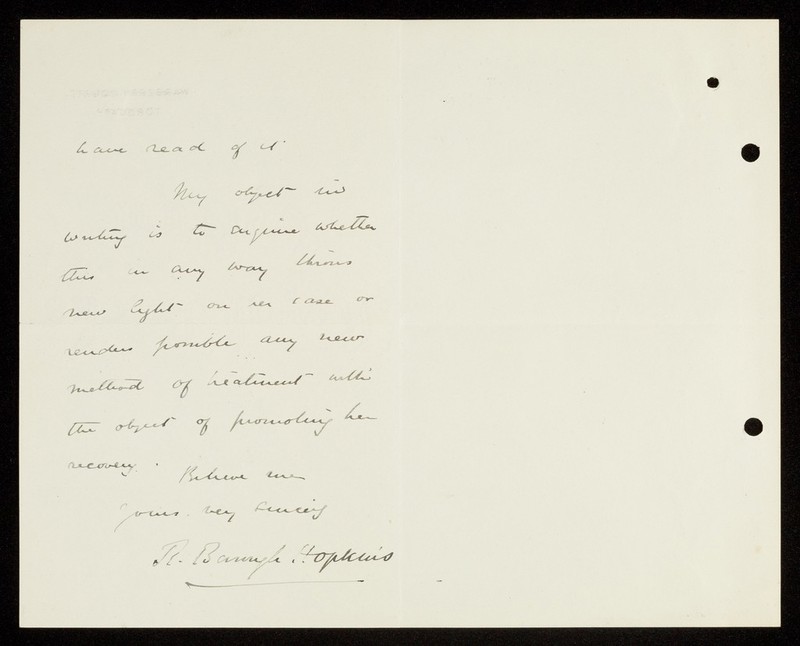 have read of it
My object in
writing is to enquire whether
this in any way throws
new light on her case or
renders possible any new
method of treatment with
the object of promoting her
recovery.
Believe me
Yours very sincerely
R. Hopkins